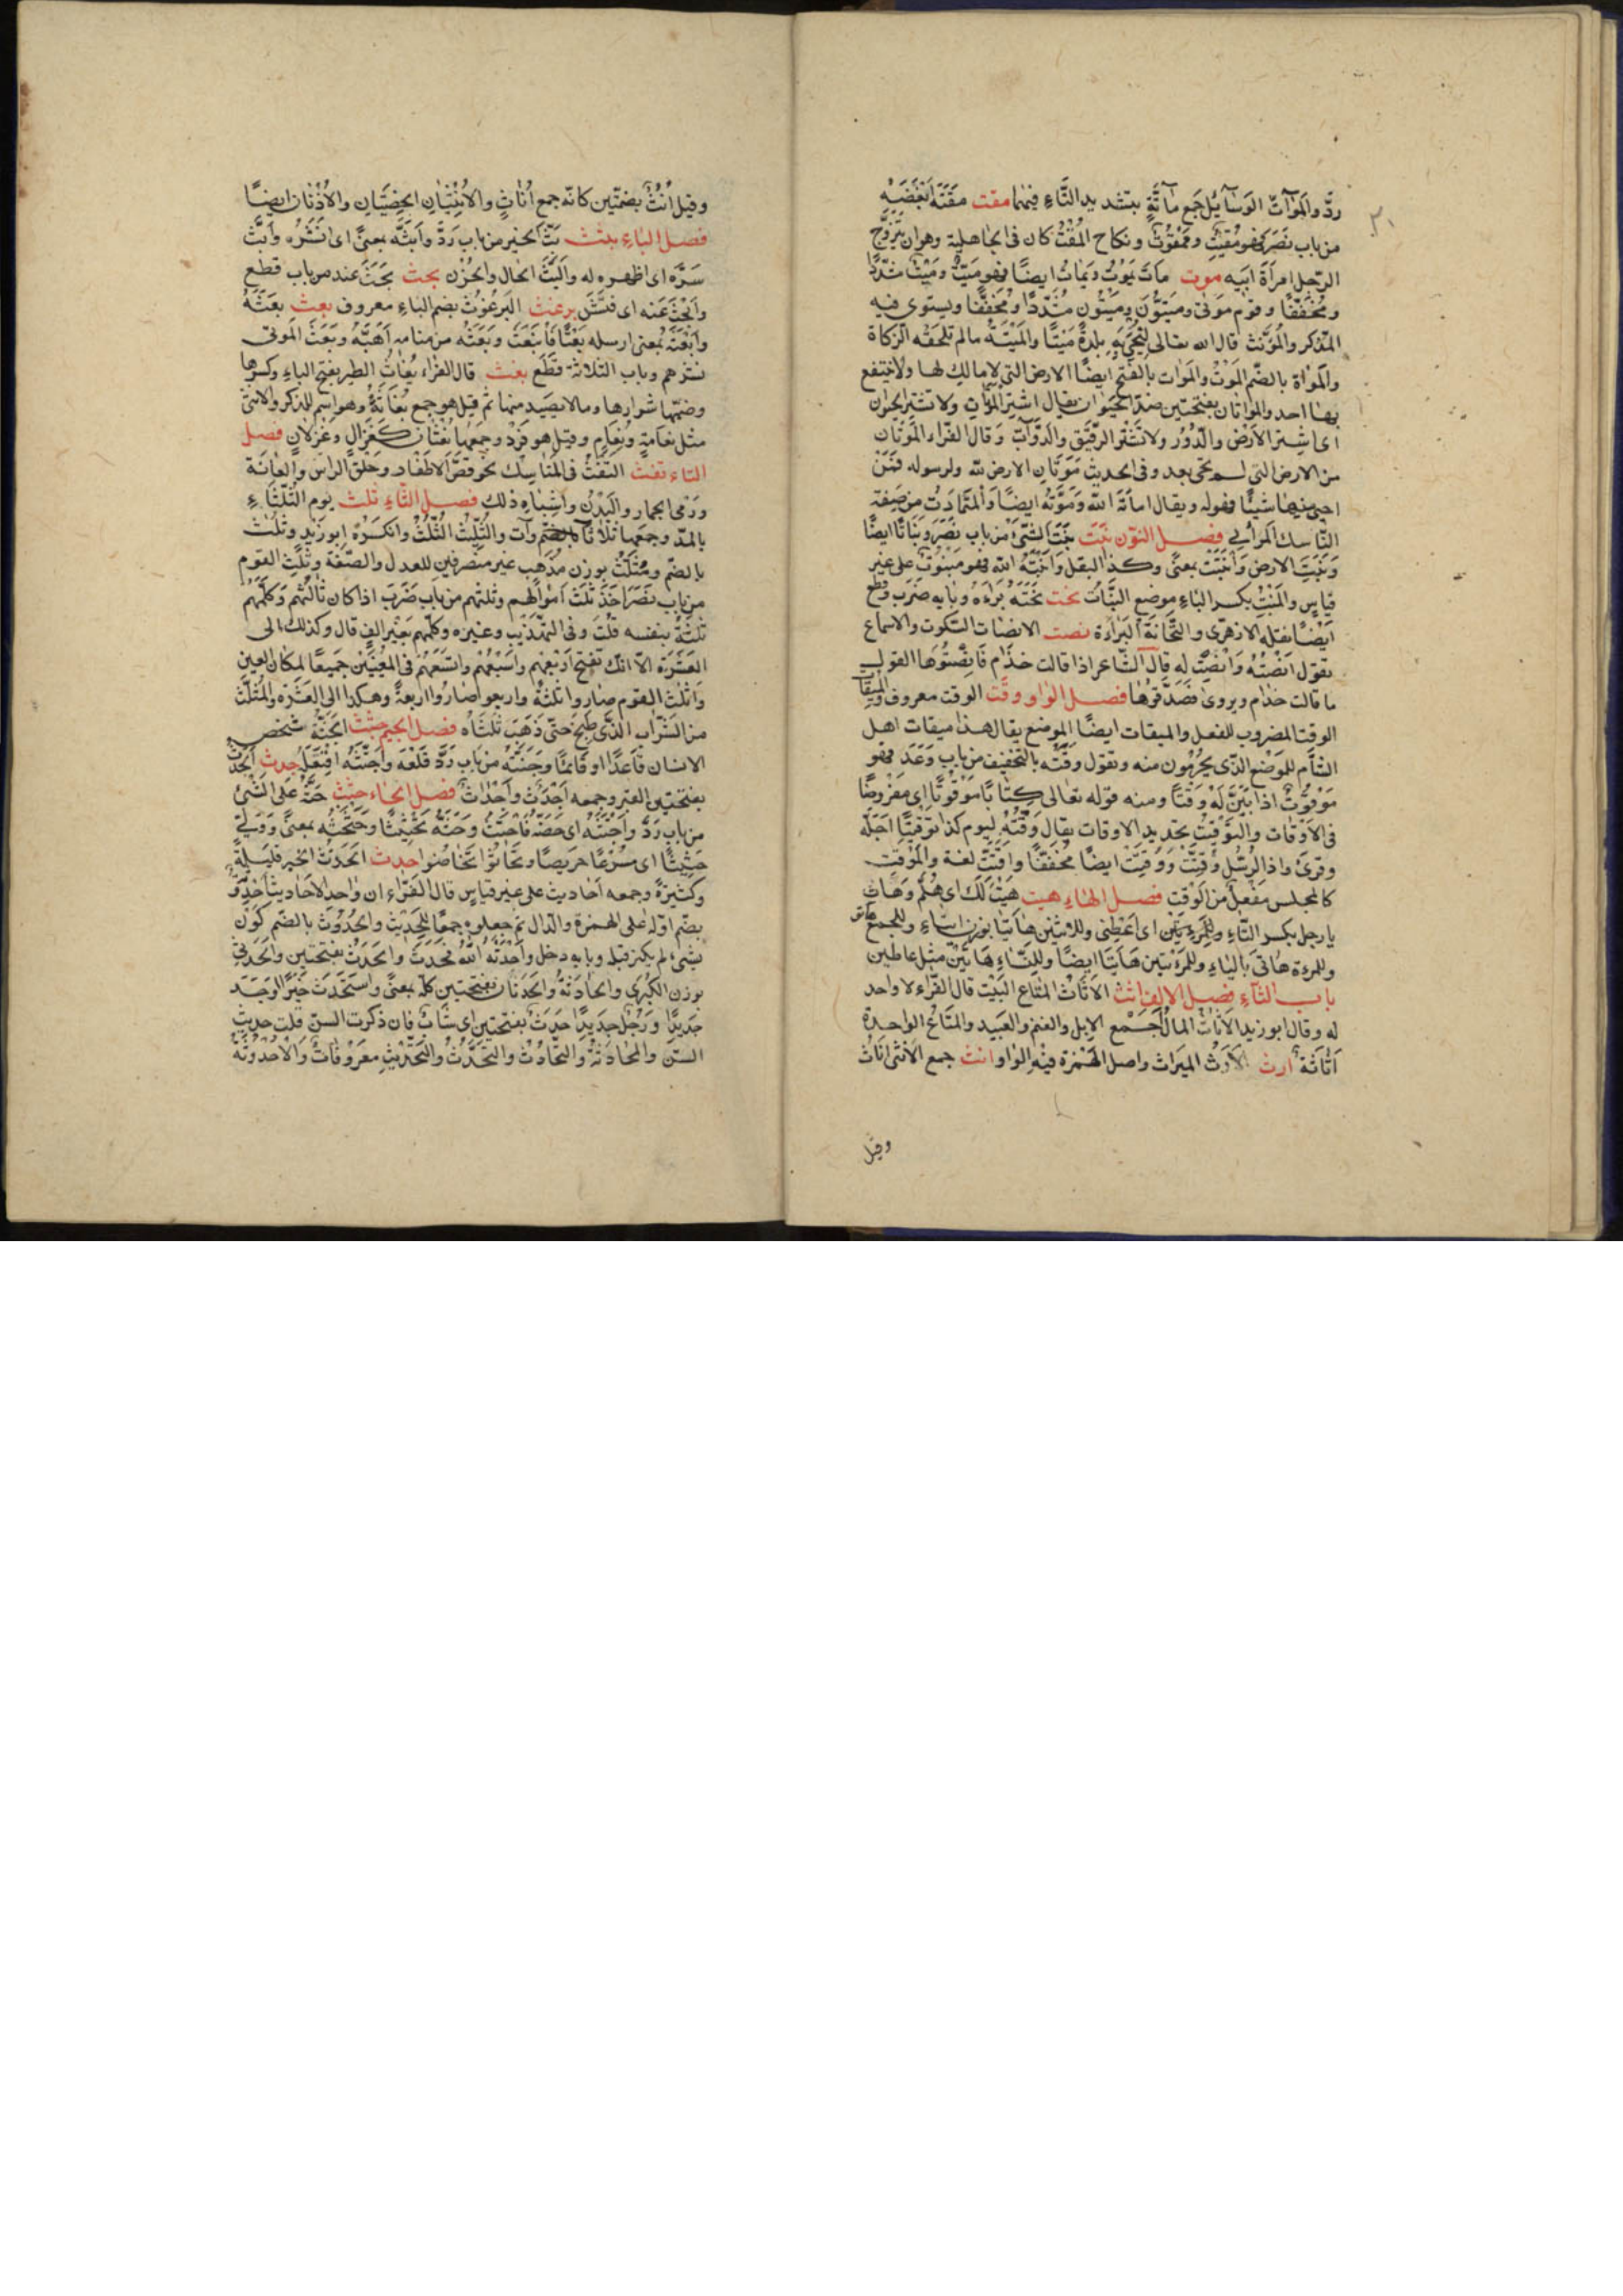 ردّ والموآتّ الوسآئل جمع مآتّة بتشديد التّاء فيهما مقت مقته ابغضه
من باب نصر فهو مقيت وممقوت ونكاح المقت كان فى الجاهلية وهو ان يتزوّج
الرّجل امرأة ابيه موت مات يموت ويمات ايضًا فهو ميّت وميت مشدّدًا
ومخفّفًا وقوم موتى وميّتون وميتون مشدّدًا ومخفّفًا ويستوى فيه
المذكر والمؤنّث قال الله تعالى لنحيى به بلدةً ميتًا والميتة مالم تلحقه الزكاة
والموات بالضّم الموت والموات بالفتح ايضًا الارض التى لا مالك لها ولا ينتفع
بها احد والموتان بفتحتين ضدّ الحيوان يقال اشتر الموتان ولا تشتر الحيوان
اى اشتر الارض والدّور ولا تشتر الرّقيق والدّوآبّ وقال الفرّاء الموتان
من الارض التى لم تحى بعد وفى الحديث موتان الارض لله ولرسوله فمن
احيى منها شيئًا فهو له ويقال اماته الله وموّته ايضًا والمتماوت من صفة
النّاسك المرائى فصل النّون نبت نبت الشّئ من باب نصر ونباتًا ايضًا
ونبتت الارض وانبتت بمعنًى وكذا البقل وانبته الله فهو منبوت على غير
قياس والمنبت بكسر الباء موضع النّبات نحت نحته براه وبابه ضرب وقطع
ايضًا نقله الازهرى والنّحاتة البراءة نصت الانصات السّكوت والاسماع
تقول انصته وانصت له قال الشّاعر اذا قالت حذام فانصتوها القول
ما قالت حذام ويروى فصدّقوها فصل الواو وقت الوقت معروف والميقات
الوقت المضروب للفعل والميقات ايضًا الموضع يقال هذا ميقات اهل
الشّأم للموضع الذّى يحرمون منه وتقول وقته بالتخفيف من باب وعد فهو
موقوت اذا بيّن له وقتًا ومنه قوله تعالى كتابًا موقوتًا اى مفروضًا
فى الاوقات والتّوقيت تحديد الاوقات يقال وقّته ليوم كذا توقيتًا اجّله
وقرئ واذا الرّسل وقّتت ووقتت ايضًا مخفّفًا واقّتت لغة والموقت
كالمجلس مفعل من الوقت فصل الهاء هيت هيت لك اى هلمّ وهات
يا رجل بكسر التّاء اى اعطنى وللاثنين هاتيا بوزن وللجمع هاتو
وللمرءة هاتى بالياء وللمرءتين هاتيا ايضًا وللنّساء هاتين مثل عاطين
باب الثآء فصل الالف اثث الاثاث المتاع البيت قال الفرّاء لا واحد
له وقال ابو زيد الاثاث المال اجمع الابل والغنم والعبيد والمتاع الواحدة
اثاثة ارث الارث الميراث واصل الهمزة فيه الواو انث جمع الانثى اناث
وقيل
وقيل انث بضمّتين كانّه جمع اناث والانثيان الخصيتان والاذنان ايضًا
فصل الباء بثث بثّ الخبر من باب ردّ وابثّه بمعنًى اى نشره وابثّ
سرّه اى اظهره له والبثّ الحال والحزن بحث بحث عنه من باب قطع
وابحث عنه اى فتّش برغث البرغوث بضم الباء معروف بعث بعثه
وابعثه بمعنى ارسله بعثًا فانبعث وبعثه من منامه اهبّه وبعث الموتى
نشرهم وباب الثلاثة قطع بغث قال الفرّاء بغاث الطير بفتح الباء وكسرها
وضمّها شرارها وما لا يصيد منها ثم قيل هو جمع بغاثة وهو اسم للذكر والانثى
مثل نعامة ونعام وقيل هو فرد وجمعها بغثان كغزال وغزلان فصل
التاء تفث التفث فى المناسك نحو قصّ الاظفار وحلق الراس والعانة
ورمى الجمار والبدن واشباه ذلك فصل الثّاء ثلث يوم الثّلثاء
بالمدّ وجمعها ثلاثاوات والثّليث الثّلث وانكره ابو زيد وثلث
بالضّم ومثلث بوزن مذهب غير منصرفين للعدل والصّفة وثلث القوم
من باب نصر اخذ ثلث اموالهم وثلثهم من باب ضرب اذا كان ثالثهم وكلّمهم
ثلثة بنفسه قلت وفى التهّذيب وغيره وكلّهم بغير الف قال وكذلك الى
العشرة الّا انّك تفتح اربعهم واسبعهم واتسعهم فى المعنيين جميعًا لمكان العين
واثلث القوم صاروا ثلثة واربعوا صاروا اربعة وهكذا الى العشرة والمثلّث
من الشّراب الّذى طبخ حتّى ذهب ثلثاه فصل الجيم جثث الجثّة شخص
الانسان قاعدًا او قائمًا وجثّه من باب ردّ قلعه واجتثّه اقتلعه جدث الجدث
بفتحتين القبر وجمعه اجدث واجداث فصل الحاء حثث حثّه على الشئ
من باب ردّ واحتثّه اى حضّه فاحتثّ وحثّه تحثيثًا وحثحثه بمعنًى وولّى
حثيثًا اى مسرعًا حريصًا وتحاثّوا تحاضّوا حدث الحديث الخبر قليله
وكثيره وجمعه احاديث على غير قياس قال الفرّاء ان واحد الاحاديث احدوثة
بضّم اوّله على الهمزة والدّال ثمّ جعلوه جمعًا للحديث والحدوث بالضّم كون
شئ لم يكن قبله وبابه دخل واحدثه الله فحدث والحدث بفتحتين والحدثى
بوزن الكبرى والحادثة والحدثان بفتحتين كلّه بمعنًى واستحدث خبرًا وجد
جديدًا ورجل حدث بفتحتين اى شابّ فان ذكرت السنّ قلت حديث
السنّ والمحادثة والتحادث والتحدّث والتحديث معروفات والاحدوثة